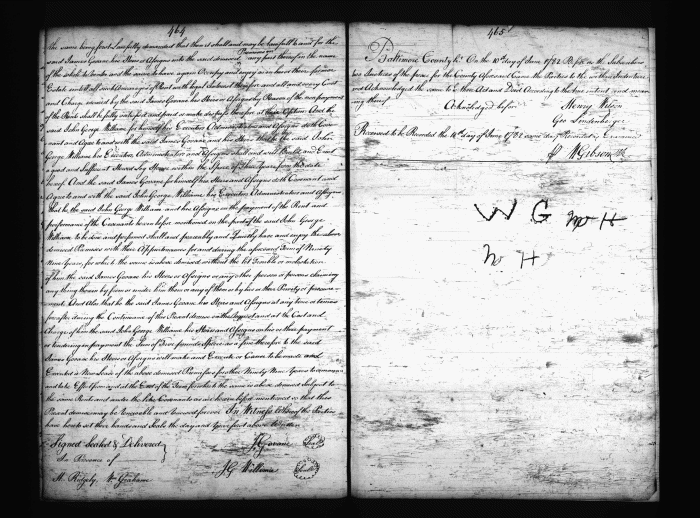 464
the same being first Lawfully demanded that then it shall and may be lawfull to and for the
said James Govane his Heirs or Assigns into the said demised Premises or any part thereof in the name
of the whole to enter and the same to have again Occupy and enjoy as in his or their former
Estate untill all such Arrears of Rent with legal Interest therefor and all and every Cost
and Charge incurred by the said James Govane his Heirs or Assigns by Reason of the nonpayment
of the Rents shall be fully satisfied and paid or made
said John George William for himself his Executors Administrators and Assigns doth Cove-
nant and Agree to and with the said James Govane and his Heirs that he the said John
George William his Executors Administrators and Assigns shall and will Build and Erect
a good and Sufficient Stone
hereof. And the said James Govane for himself his Heirs and Assigns doth Covenant and
Agree to and with the said John George William his Executors Administrators and Assigns
that he the said John George William and his Assigns on the payment of the Rent and
performance of the Covenants herein before mentioned on the part of the said John George
William to be done and performed shall and may peaceably and Quietly have and enjoy the above
demised Premises with their Appurtenances for and during the aforesaid Term of Ninety
Nine Years for which the same is above demised without the let Trouble or molestation
of him the said James Govane his Heirs or Assigns or any other person or persons claiming
any thing therein by from or under him them or any of them or by his or their Privity or procure-
ment. And Also that he the said James Govane his Heirs and Assigns at any time or times
hereafter during the Continuance of this Present demise at the Request and at the Cost and
Charge of him the said John George William his Heirs and Assigns on his or their payment
or tendering in payment the Sum of Five pounds Specie as a fine therefor to the said
James Govane his Heirs or Assigns will make and Execute or Cause to be made and
Executed a New Lease of the above demised Premises for a further Ninety Nine Years to commence
and take Effect from and at the End of the Term for which the same is above demised Subject to
the same Rents and under the like Covenants as are herein before mentioned so that this
Present demise may be Renewable and Renewed forever In Witness Whereof the Parties
have hereto set their hands and Seals the day and Year first above Written
Signed Sealed & Delivered
In Presence of
H. Ridgely, Wm Graham
J. Govane (Seal)
J G William (Seal)
465
Baltimore County Sc. On the 10th day of June 1782 Before us the Subscribers
two Justices of the peace for the County Aforesaid Came the Parties to the within Indenture
and Acknowledged the same to be their Act and Deed According to the true intent and mean-
ing thereof
Acknowledged before
Henry Wilson
Geo Lindenberger
Received to be Recorded the 14th day of June 1782 same day Recorded & Examined
Pr Wm Gibson Clk
W G W H
W H